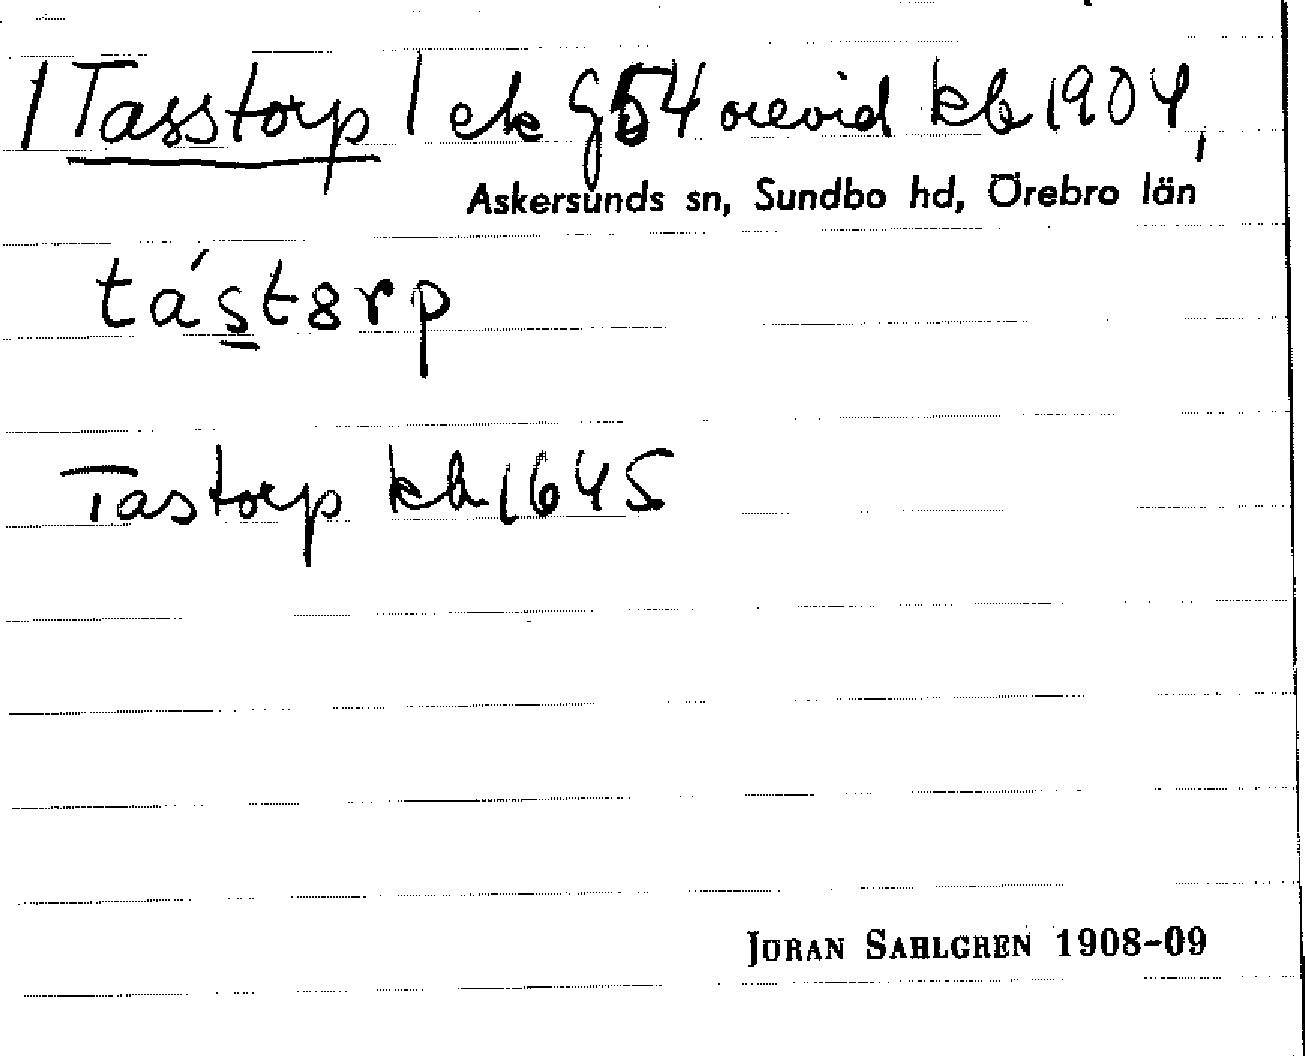 /Tasstorp/ ek G54 orevid kb 1904,
Askersunds sn, Sundbo hd, Örebro län
tást8rp
Tastorp kb 1645
JÖRAN SAHLGREN 1908-09